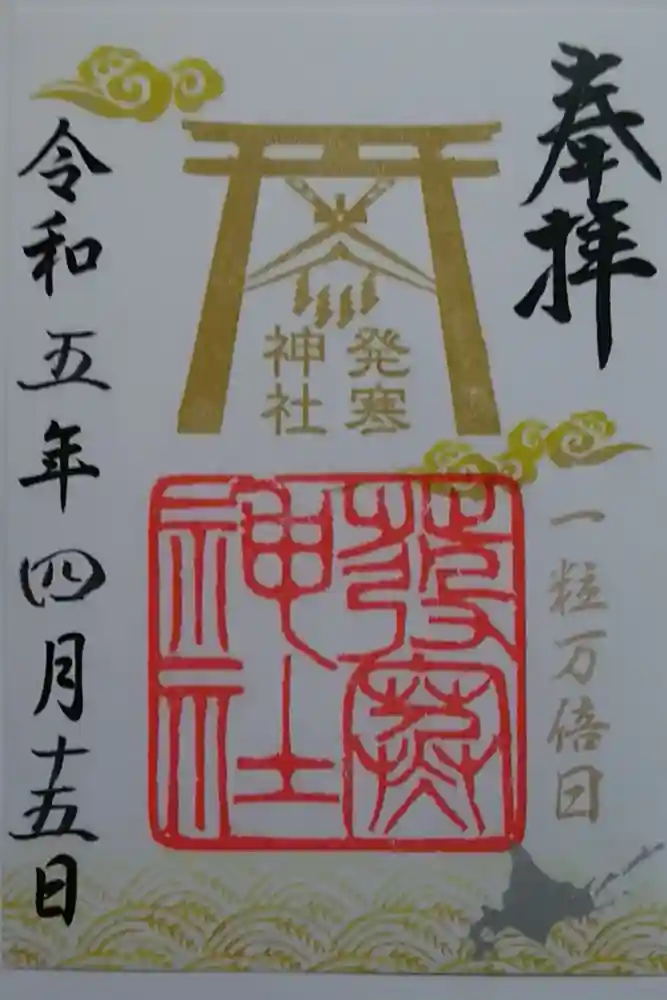 奉拝
一粒万倍日
発寒
神社
發寒
神社
令和五年四月十五日